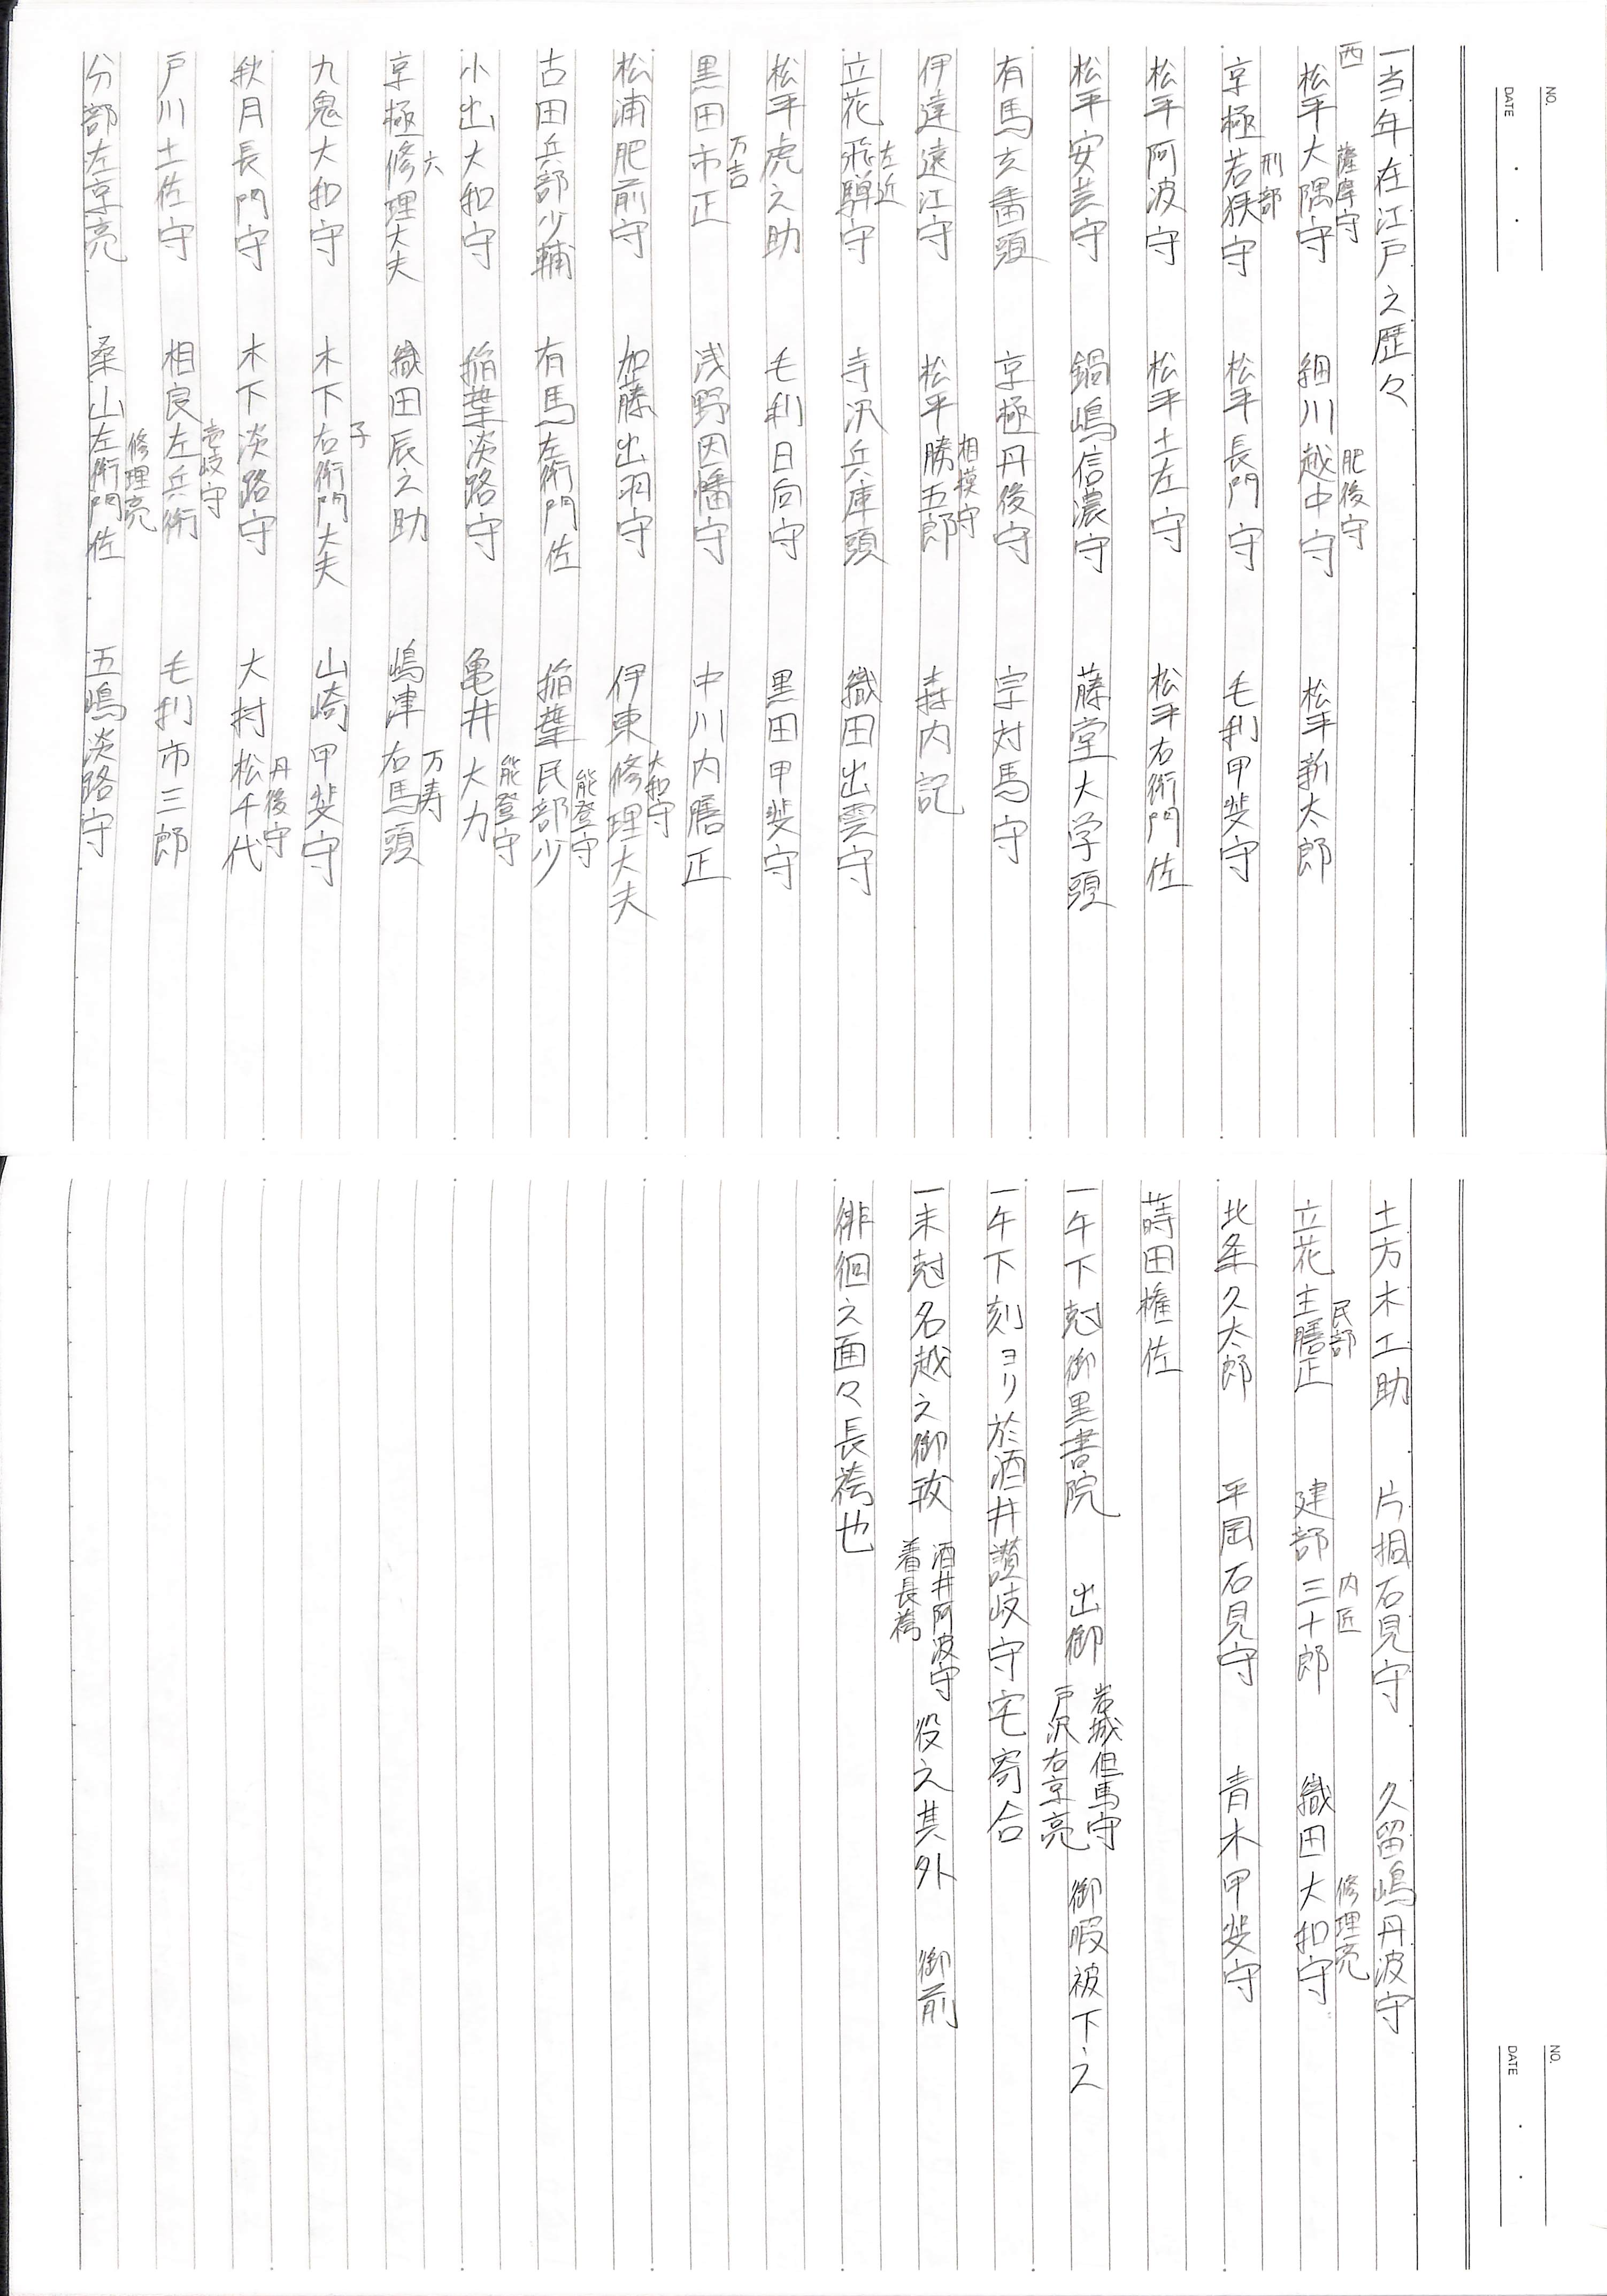 NO.
DATE
一当年在江戸之歴々
西
薩摩守 肥後守
松平大隅守 細川越中守 松平新太郎
刑部
京極若狭守 松平長門守 毛利甲斐守
松平阿波守 松平土左守 松平右衛門佐
松平安芸守 鍋嶋信濃守 藤堂大学頭
有馬玄蕃頭 京極丹後守 宗対馬守
相摸守
伊達遠江守 松平勝五郎 森内記
左近
立花飛騨守 寺沢兵庫頭 織田出雲守
松平虎之助 毛利日向守 黒田甲斐守
万吉
黒田市正 浅野因幡守 中川内膳正
大和守
松浦肥前守 加藤出羽守 伊東修理大夫
能登守
古田兵部少輔 有馬左衛門佐 稲葉民部少
能登守
小出大和守 稲葉淡路守 亀井大力
六 万寿
京極修理大夫 織田辰之助 嶋津右馬頭
子
九鬼大和守 木下右衛門大夫 山崎甲斐守
丹後守
秋月長門守 木下淡路守 大村松千代
壱岐守
戸川土佐守 相良左兵衛 毛利市三郎
修理亮
分部左京亮 桑山左衛門佐 五嶋淡路守
NO.
DATE
土方木工助 片桐石見守 久留嶋丹波守
民部 内匠 修理亮
立花主膳正 建部三十郎 織田大和守
北条久太郎 平岡石見守 青木甲斐守
蒔田権佐
一午下尅御黒書院 出御 岩城但馬守 戸沢右京亮 御暇被下之
一午下刻ヨリ於酒井讃岐守宅寄合
一未尅名越之御祓 酒井阿波守 着長袴 役之其外 御前
徘徊之面々長袴也